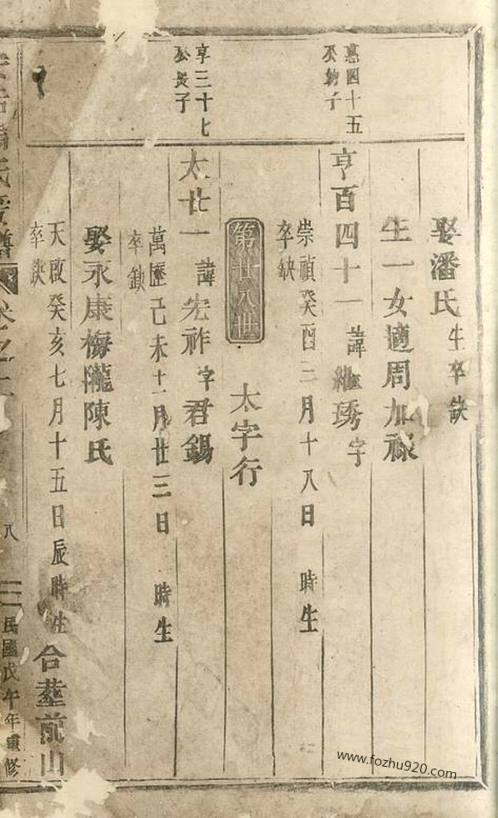 娶潘氏 生卒缺
生一女適周加祿
惠四十五
公幼子
亨百四十一 諱維琇字
崇禎癸酉二月十八日 時生
卒缺
第廿八世 太字行
亨三十七
公長子
太廿一 諱宏祚字君錫
萬歷己未十一月廿三日 時生
卒缺
娶永康梅隴陳氏
天啟癸亥七月十五日辰時生
卒缺 合塟前山
氏宗譜 卷之十
八
民國戊午年重修
www.fozhu920.com